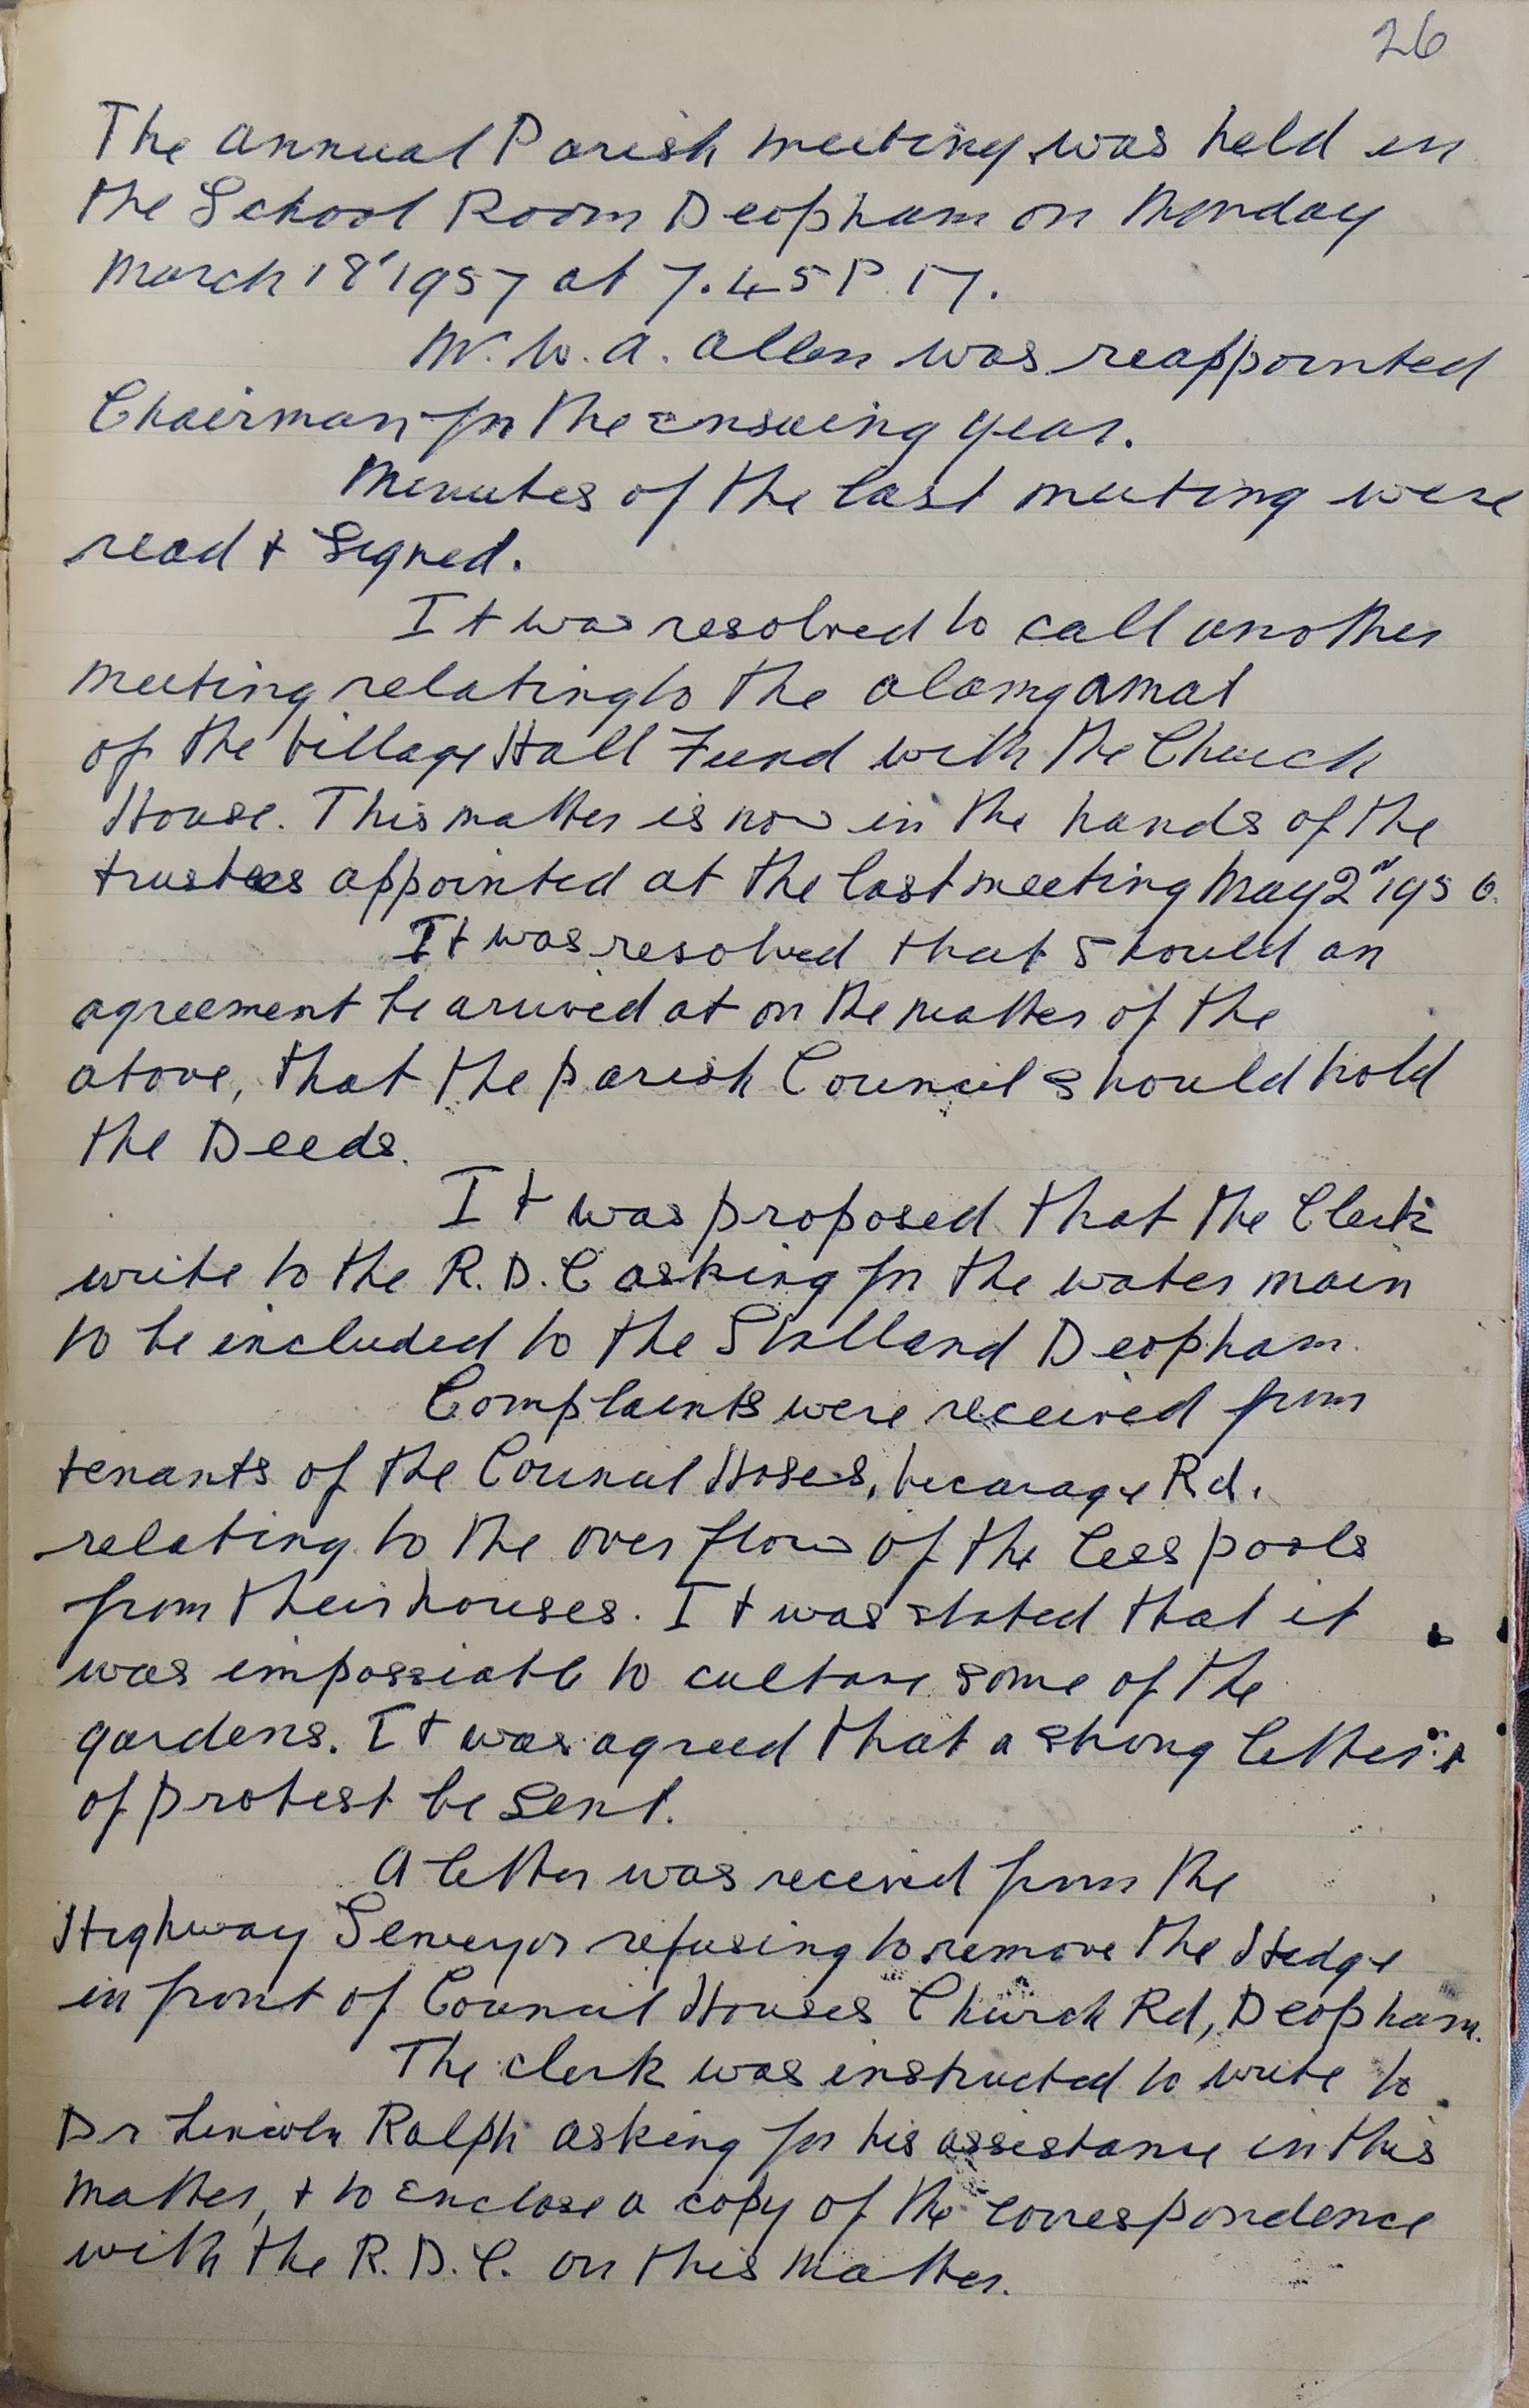 26
The annual Parish meeting was held in
the School Room Deopham on Monday
March 18th 1957 at 7.45 P.M.
Mr. W. A. Allen was reappointed
Chairman for the ensuing year.
Minutes of the last meeting were
read + Signed.
It was resolved to call another
meeting relating to the alamgamat
of the Village Hall Fund with the Church
House. This matter is now in the hands of the
trustees appointed at the last meeting May 2nd 1956.
It was resolved that should an
agreement be arrived at on the matter of the
above, that the parish Council should hold
the Deeds.
It was proposed that the Clerk
write to the R.D.C asking for the water main
to be included to the Stalland Deopham.
Complaints were received from
tenants of the Council Hoses, Vicarage Rd.
relating to the over flow of the Cess pools
from their houses. It was stated that it
was impossiable to culture some of the
gardens. It was agreed that a strong letter
of protest be Sent.
A letter was received from the
Highway Serveyor refusing to remove the Hedge
in front of Council Houses Church Rd, Deopham.
The clerk was instructed to write to
Dr Lincoln Ralph asking for his assistance in this
matter, + to enclose a copy of the correspondence
with the R.D.C. on this matter.